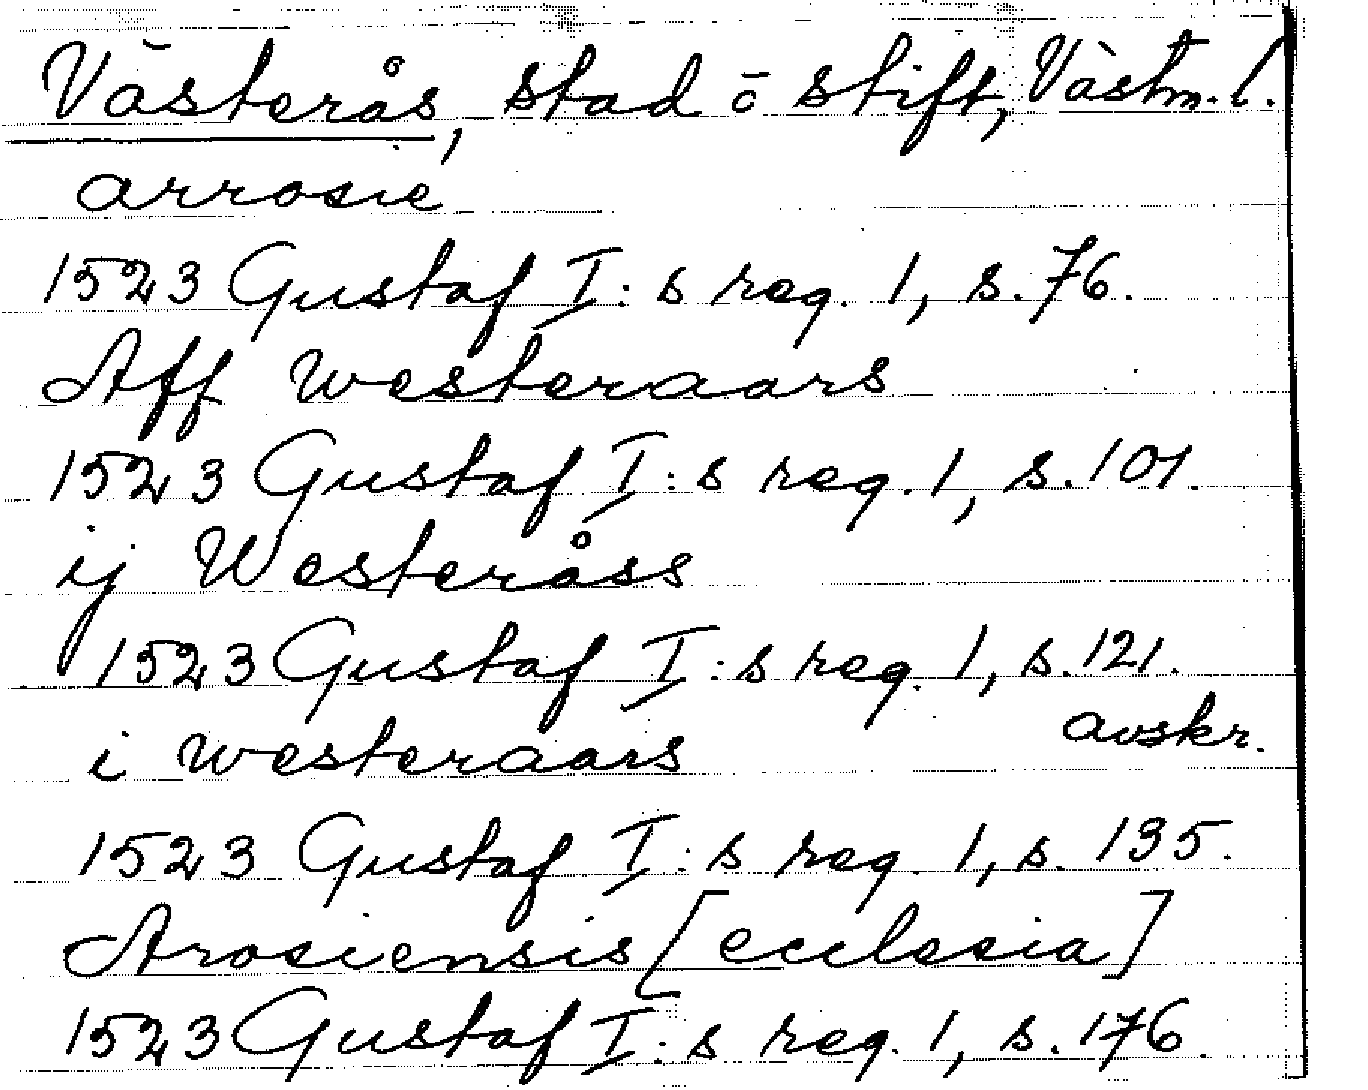 Västerås, stad o stift, Västm. l.
arrosie
1523 Gustaf I:s reg. 1, s. 76.
Aff westeraars
1523 Gustaf I:s reg. 1, s. 101.
ij Westeråss
1523 Gustaf I:s reg. 1, s. 121.
avskr.
i westeraars
1523 Gustaf I:s reg. 1, s. 135.
Arosiensis [ecclesia]
1523 Gustaf I:s reg. 1, s. 176.